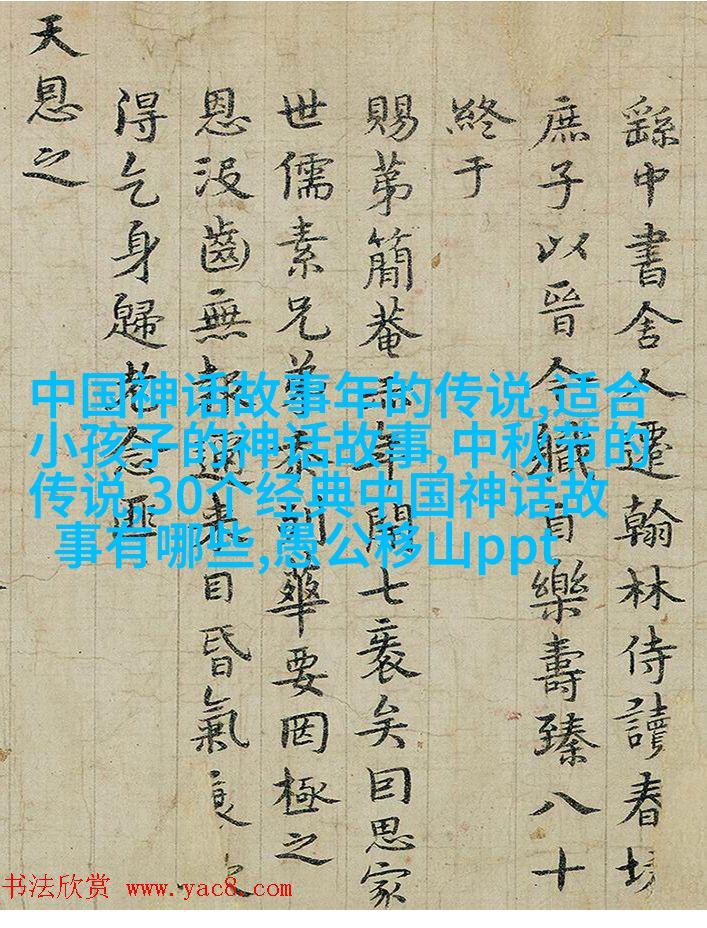 繇中書舍人遷翰林侍讀春坊
庶子以晉今職樂壽臻八十
終于
賜第簡菴年開七袠矣回思家
世儒素兄弟忝列華要罔極之
恩沒齒無報邇來目昏氣衰
得乞身歸老念
天恩之
中国神话故事年的传说,适合
小孩子的神话故事,中秋节的
传说,30个经典中国神话故
事有哪些,愚公移山ppt
书法欣赏 www.yac8.com